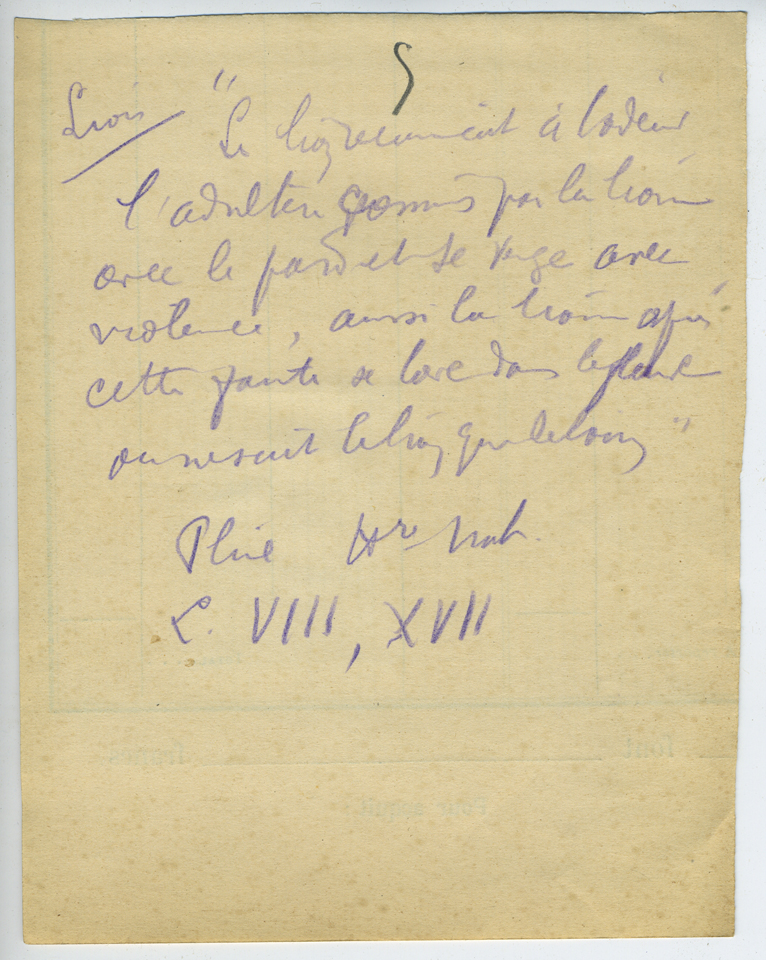 5
Lion " Le lion reconnaît à l'odeur
l'adultère commis par la lionne
avec le pard et se venge avec
violence, aussi la lionne après
cette faute se lave dans le fleuve
ou ne suit le lion que de loin "
Pline Hre Nat.
L. VIII, XVII